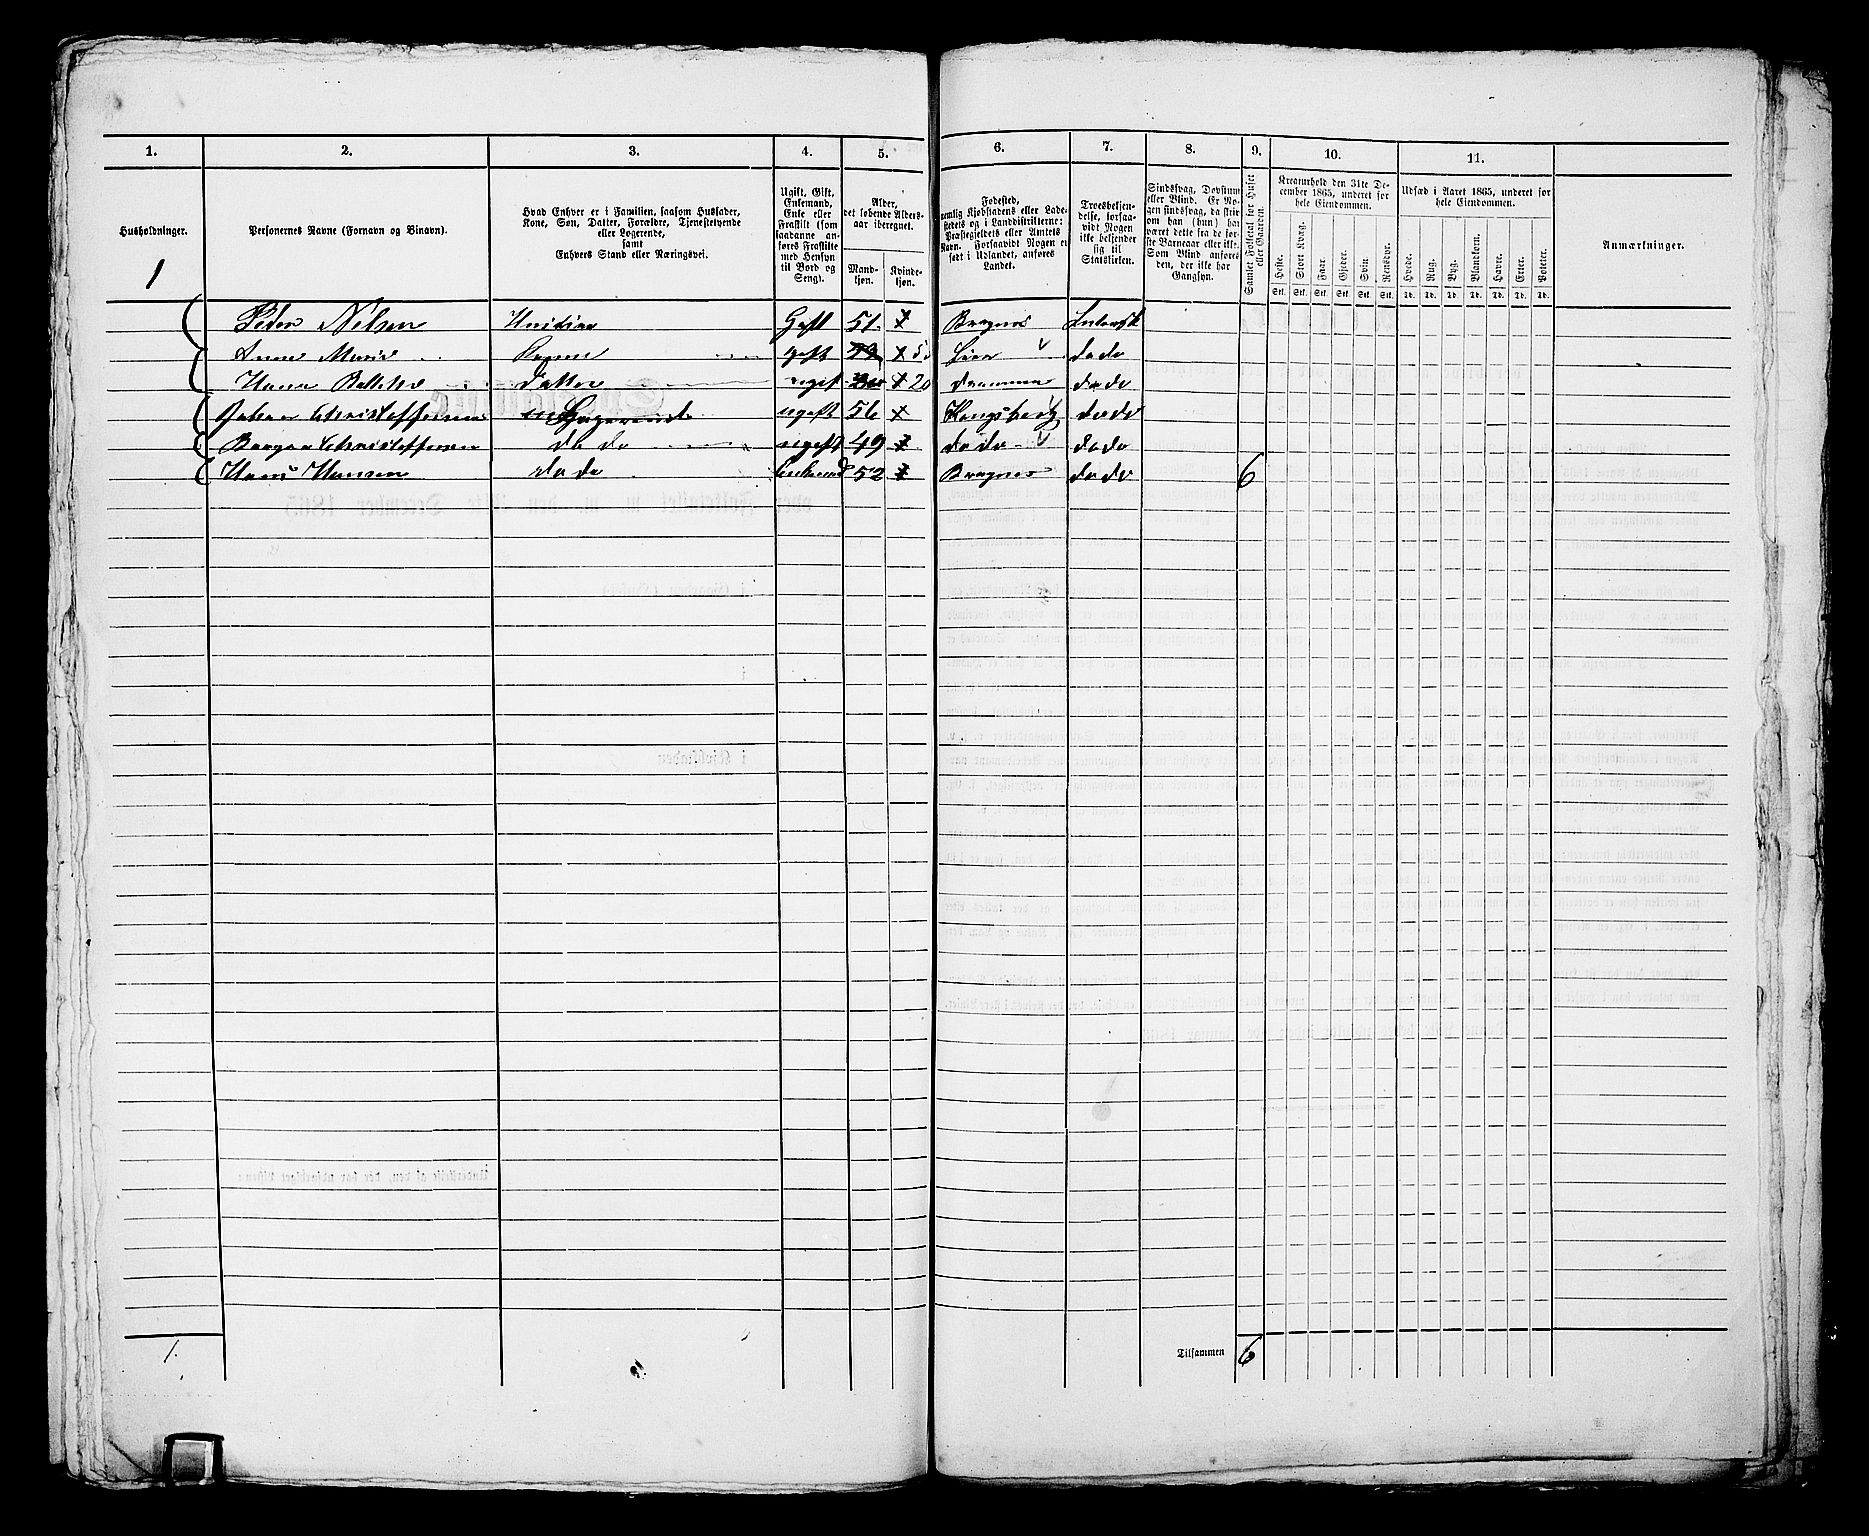 1. 2. 3. 4. 5. 6. 7. 8. 9. 10. 11.
Husholdninger.
Personernes Navne (Fornavn og Binavn).
Hvad Enhver er i Familien, saasom Husfader,
Kone, Søn, Datter, Forældre, Tjenestetyende
eller Logerende,
samt
Enhvers Stand eller Næringsvei.
Ugift, Gift,
Enkemand,
Enke eller
Fraskilt (som
saadanne an-
føres Fraskilte
med Hensyn
til Bord og
Seng).
Alder,
det løbende Alders-
aar iberegnet.
Mand-
kjøn.
Kvinde-
kjøn.
Fødested,
nemlig Kjøbstadens eller Lade-
stedets og i Landdistrikterne:
Præstegjeldets eller Amtets
Navn. Forsaavidt Nogen er
født i Udlandet, anføres
Landet.
Troesbekjen-
delse, forsaa-
vidt Nogen
ikke bekjender
sig til
Statskirken.
Sindssvag, Døvstum
eller Blind. Er No-
gen sindssvag, da skriv
om han (hun) har
været dette fra de før-
ste Barneaar eller ikke.
Som Blind anføres
den, der ikke har
Gangsyn.
Samlet Folketal for Huset
eller Gaarden.
Kreaturhold den 31te De-
cember 1865, underet for
hele Eiendommen.
Heste. Stort Kvæg. Faar. Gjeder. Svin. Rensdyr.
Stk. Stk. Stk. Stk. Stk. Stk.
Udsæd i Aaret 1865, underet for
hele Eiendommen.
Hvede. Rug. Byg. Blandkorn. Havre. Erter. Poteter.
Td. Td. Td. Td. Td. Td. Td.
Anmærkninger.
1
Peder Nilsen Gift 51 Bragnes Lutersk
Anna Marie Kone gift 50 Lier do do
Datter ugift 20 Drammen do do
Johan Christoffersen Logerende ugift 56 Kongsberg do do
Christoffersen do do ugift 49 do do do do
Hans Hansen do do Enkemand 52 Bragnes do do 6
1. Tilsammen 6